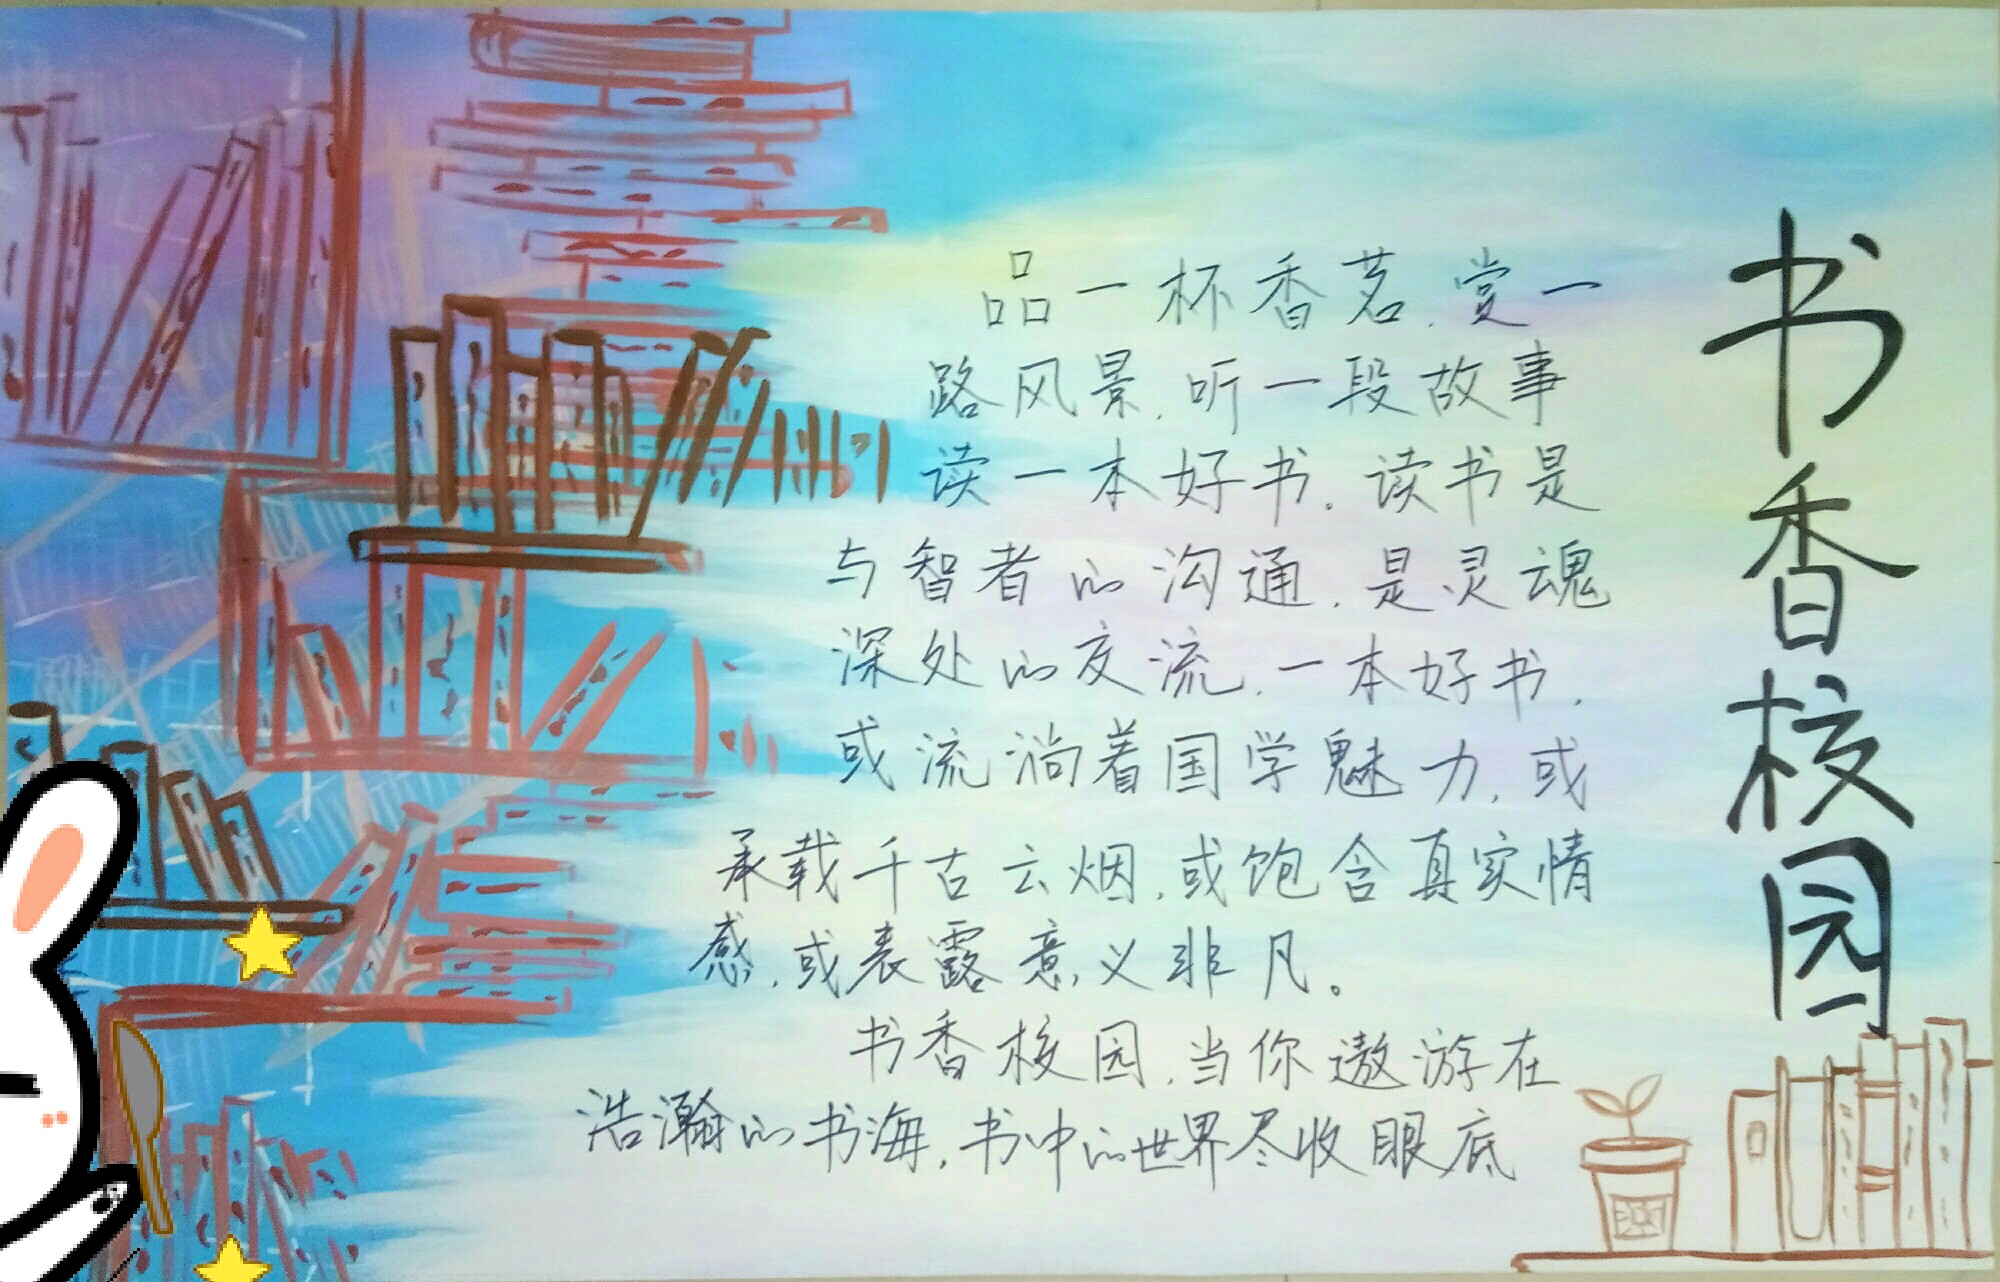 书香校园
品一杯香茗，赏一
路风景，听一段故事
读一本好书。读书是
与智者的沟通，是灵魂
深处的交流，一本好书，
或流淌着国学魅力，或
承载千古云烟，或饱含真实情
感，或表露意义非凡。
书香校园，当你遨游在
浩瀚的书海，书中的世界尽收眼底